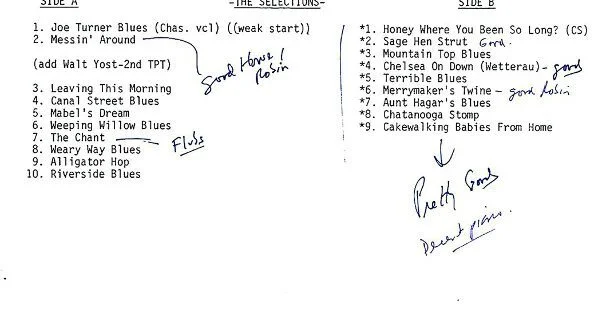 SIDE A
-THE SELECTIONS-
SIDE B
1. Joe Turner Blues (Chas. vcl) ((weak start))
2. Messin' Around
good Howe!
Robin
(add Walt Yost-2nd TPT)
3. Leaving This Morning
4. Canal Street Blues
5. Mabel's Dream
6. Weeping Willow Blues
7. The Chant
Flubs
8. Weary Way Blues
9. Alligator Hop
10. Riverside Blues
*1. Honey Where You Been So Long? (CS)
*2. Sage Hen Strut Good.
*3. Mountain Top Blues
*4. Chelsea On Down (Wetterau) - good
*5. Terrible Blues
*6. Merrymaker's Twine - good Robin
*7. Aunt Hagar's Blues
*8. Chatanooga Stomp
*9. Cakewalking Babies From Home
Pretty Good
Decent piano.